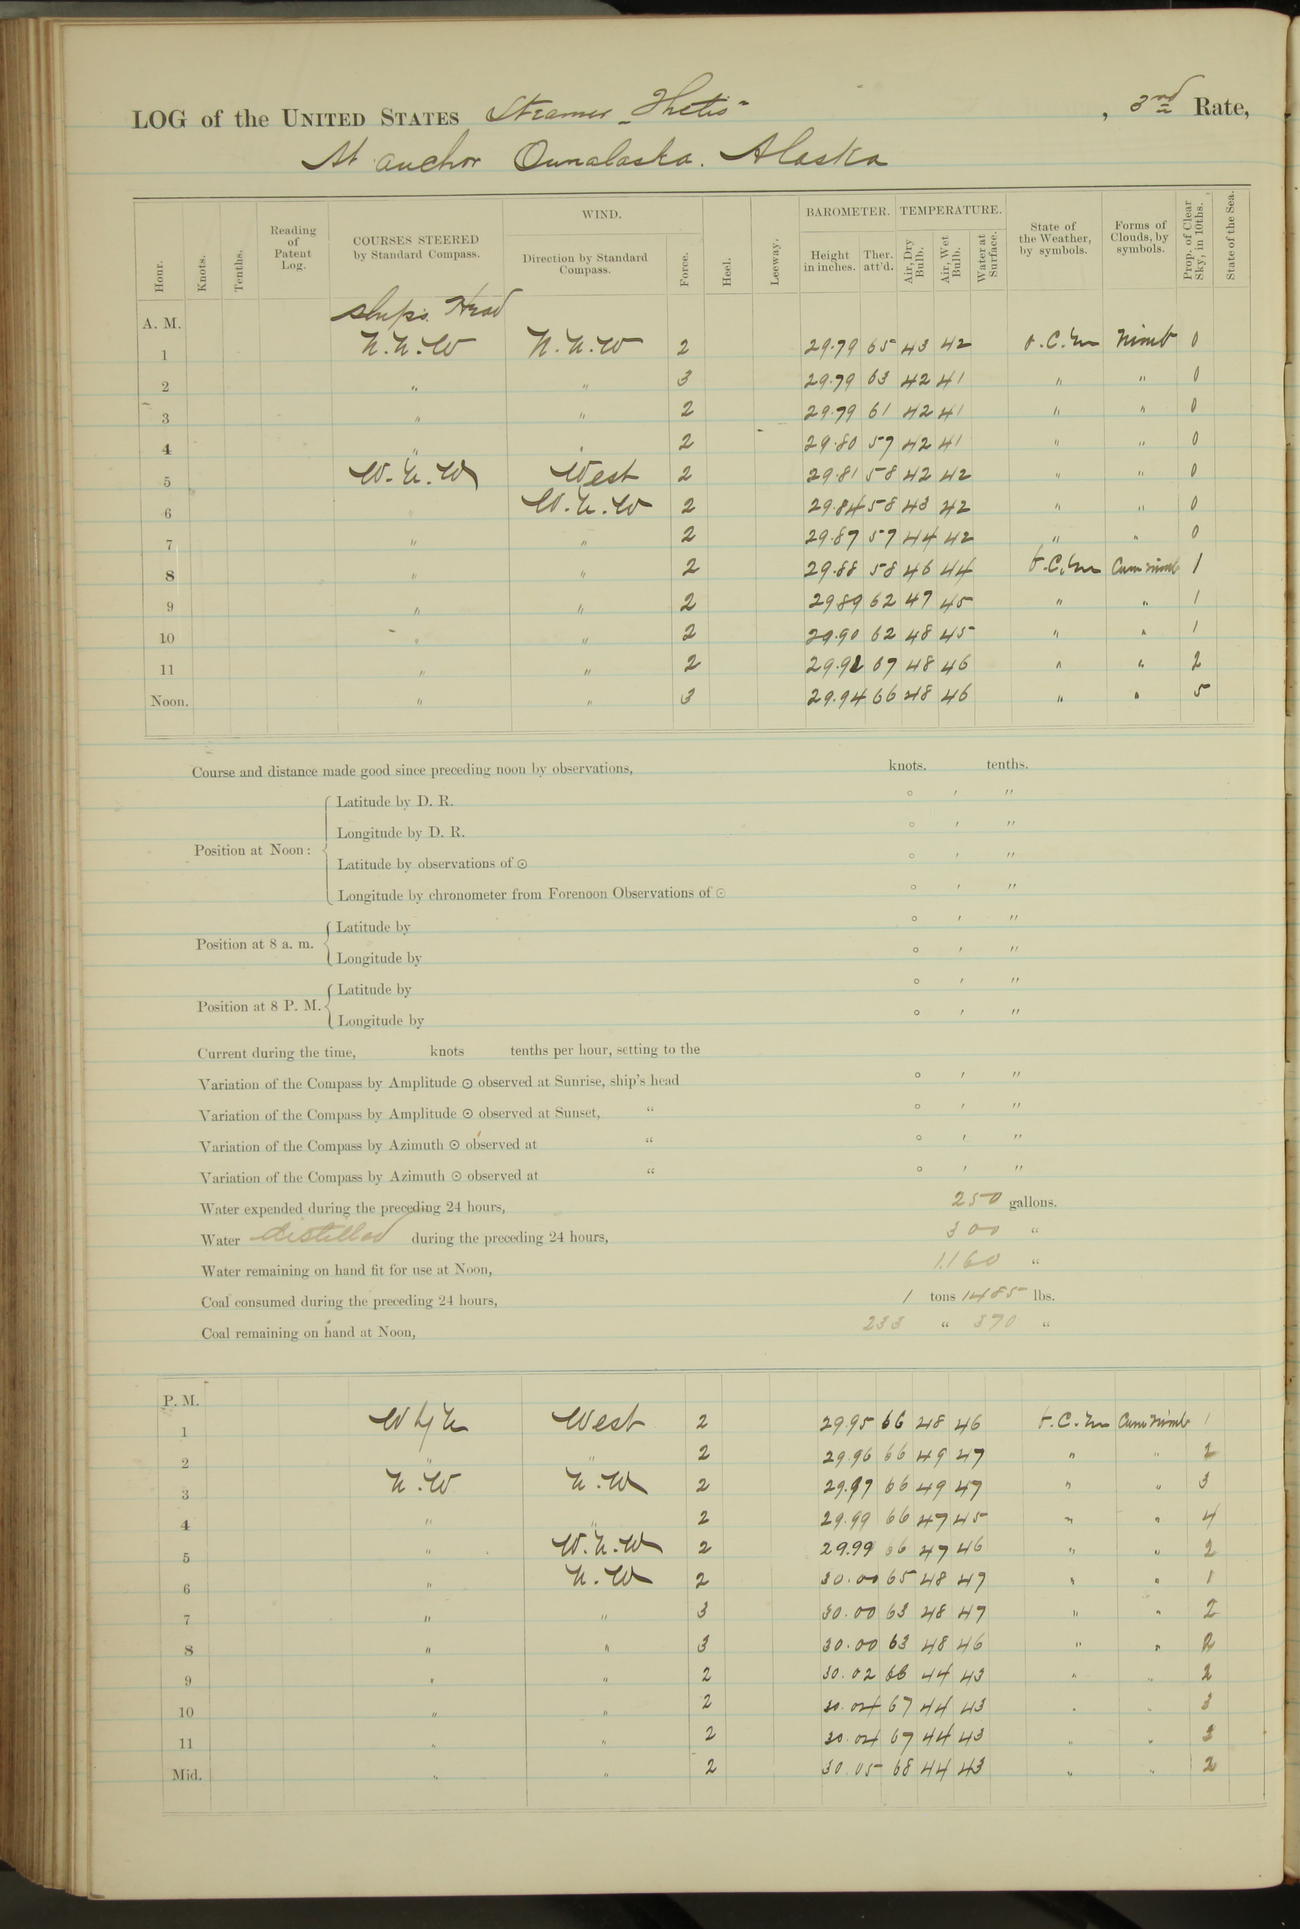 LOG of the UNITED STATES Steamer "Thetis" , 3rd Rate,
At anchor Ounalaska. Alaska
Hour. Knots. Tenths. Reading of Patent Log. COURSES STEERED by Standard Compass. WIND. Direction by Standard Compass. Force. Heel. Leeway. BAROMETER. Height in inches. Ther. att'd. TEMPERATURE. Air, Dry Bulb. Air, Wet Bulb. Water at Surface. State of the Weather, by symbols. Forms of Clouds, by symbols. Prop. of Clear Sky, in 10ths. State of the Sea.
A. M. Ships Head
1 N.N.W N.N.W 2 29.79 65 43 42 o.c.m Nimb 0
2 " " 3 29.79 63 42 41 " " 0
3 " " 2 29.79 61 42 41 " " 0
4 " " 2 29.80 57 42 41 " " 0
5 W.N.W West 2 29.81 58 42 42 " " 0
6 " W.N.W 2 29.84 58 43 42 " " 0
7 " " 2 29.87 57 44 42 " " 0
8 " " 2 29.88 58 46 44 b.c.m Cum nimb 1
9 " " 2 29 89 62 47 45 " " 1
10 " " 2 29.90 62 48 45 " " 1
11 " " 2 29.92 67 48 46 " " 2
Noon. " " 3 29.94 66 48 46 " " 5
Course and distance made good since preceding noon by observations, knots. tenths.
Position at Noon: Latitude by D. R. ° ′ ″
Longitude by D. R. ° ′ ″
Latitude by observations of ☉ ° ′ ″
Longitude by chronometer from Forenoon Observations of ☉ ° ′ ″
Position at 8 a. m. Latitude by ° ′ ″
Longitude by ° ′ ″
Position at 8 P. M. Latitude by ° ′ ″
Longitude by ° ′ ″
Current during the time, knots tenths per hour, setting to the
Variation of the Compass by Amplitude ☉ observed at Sunrise, ship's head ° ′ ″
Variation of the Compass by Amplitude ☉ observed at Sunset, " ° ′ ″
Variation of the Compass by Azimuth ☉ observed at " ° ′ ″
Variation of the Compass by Azimuth ☉ observed at " ° ′ ″
Water expended during the preceding 24 hours, 250 gallons.
Water distilled during the preceding 24 hours, 300 "
Water remaining on hand fit for use at Noon, 1160 "
Coal consumed during the preceding 24 hours, 1 tons 1485 lbs.
Coal remaining on hand at Noon, 233 " 370 "
P. M.
1 W by N West 2 29.95 66 48 46 b.c.m Cum nimb 1
2 " " 2 29.96 66 49 47 " " 2
3 N.W N.W 2 29.97 66 49 47 " " 3
4 " " 2 29.99 66 47 45 " " 4
5 " W.N.W 2 29.99 66 47 46 " " 2
6 " N.W 2 30.00 65 48 47 " " 1
7 " " 3 30.00 63 48 47 " " 2
8 " " 3 30.00 63 48 46 " " 2
9 " " 2 30.02 66 44 43 " " 2
10 " " 2 30.04 67 44 43 " " 3
11 " " 2 30.04 67 44 43 " " 3
Mid. " " 2 30.05 68 44 43 " " 2